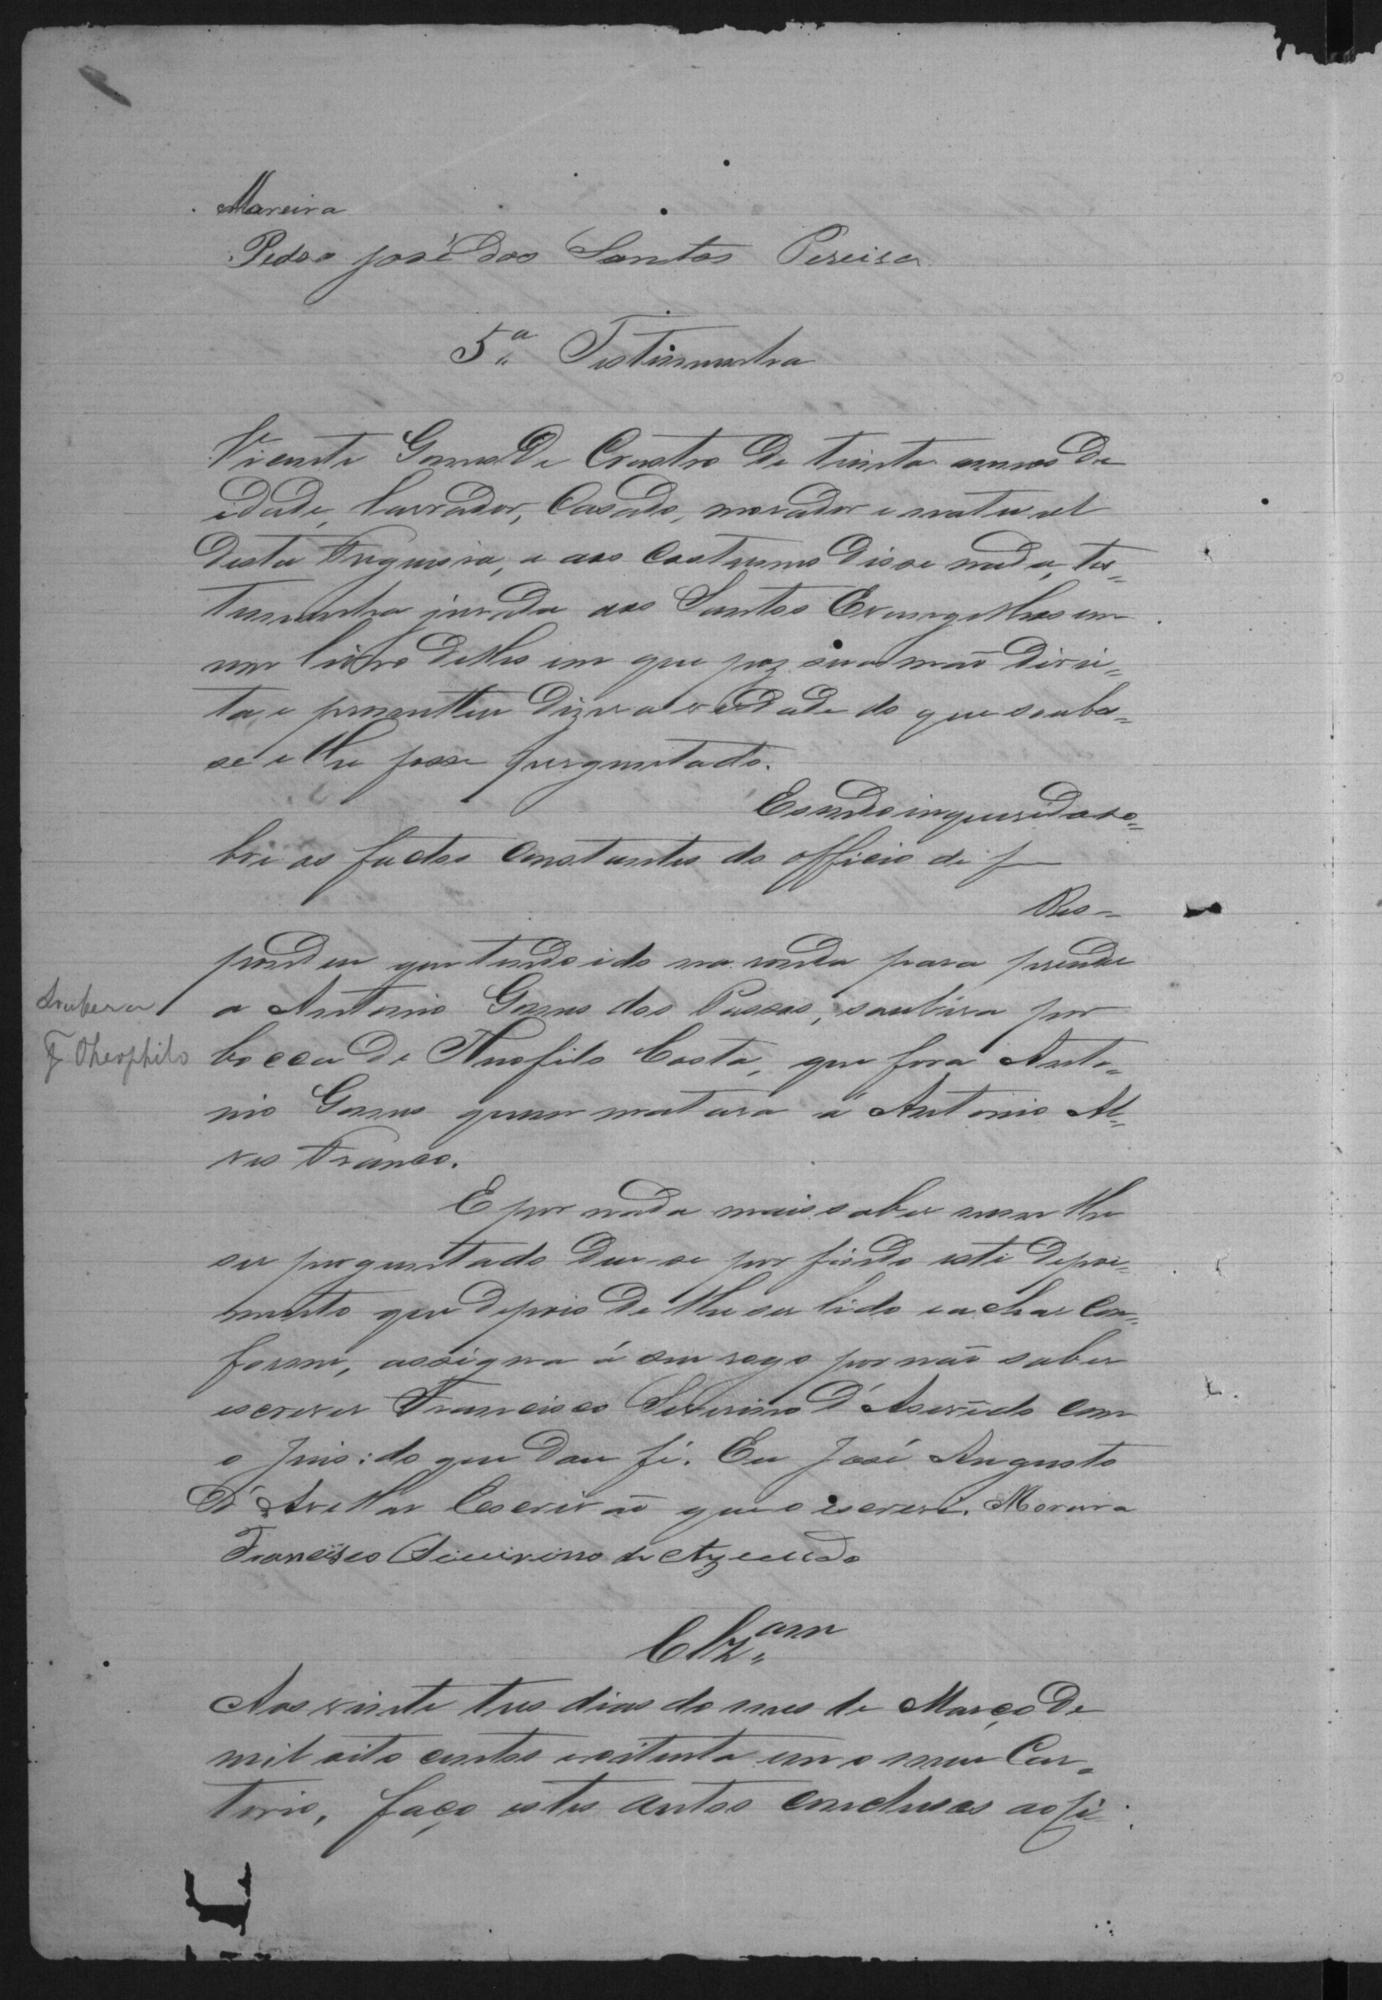 Moreira
Pedro José dos Santos Pereira
5.ª Testimunha
Vicente Gomes de Crastro de trinta annos de
idade, lavrador, Casado, morador e natural
desta Freguesia, e aos Costumes disse nada, tes=
temunha jurada aos Santos Evangelhos em
um livro delles em que poz sua mão direi=
ta, e prometteu dizer a verdade do que soubes=
se e lhe fosse perguntado.
E sendo inquerida so=
bre os factos constantes do officio de f
Res=
pondeu que tendo ido na ronda para prender
a Antonio Gomes dos Passos, soubera por
bocca de Theofilo Costa, que fora Anto=
nio Gomes quem matara a Antonio Al=
ves Franco.
Soubera
Theophilo
E por nada mais saber nem lhe
ser perguntado deu-se por findo este depoi=
mento que depois de lhe ser lido e achar Con=
forme, assigna á seu rogo por não saber
escrever Francisco Severino d'Asevedo com
o Juis: do que dou fé. Eu José Augusto
d'Avellar Escrivão que o escrevi. Moreira
Francisco Siveirino de Azevedo
Clz.am
Aos vinte tres dias do mes de Março de
mil oito centos e oitenta em o meu Car=
torio, faço estes autos conclusos ao Ci